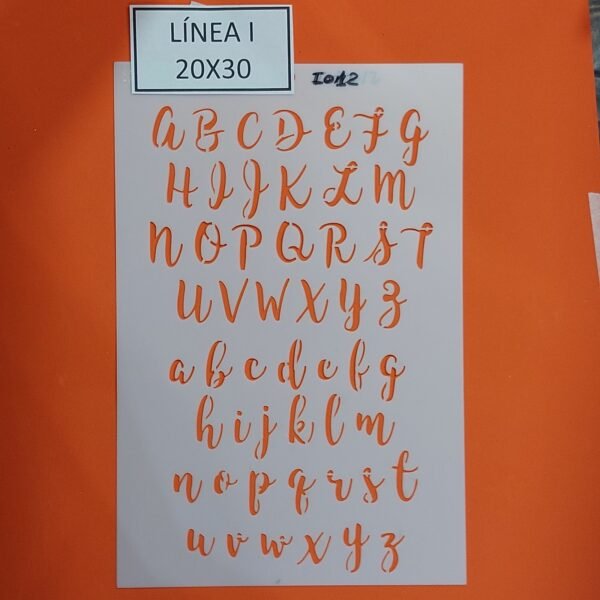 LÍNEA I
20X30
I012
A B C D E F G
H I J K L M
N O P Q R S T
U V W X Y Z
a b c d e f g
h i j k l m
n o p q r s t
u v w x y z